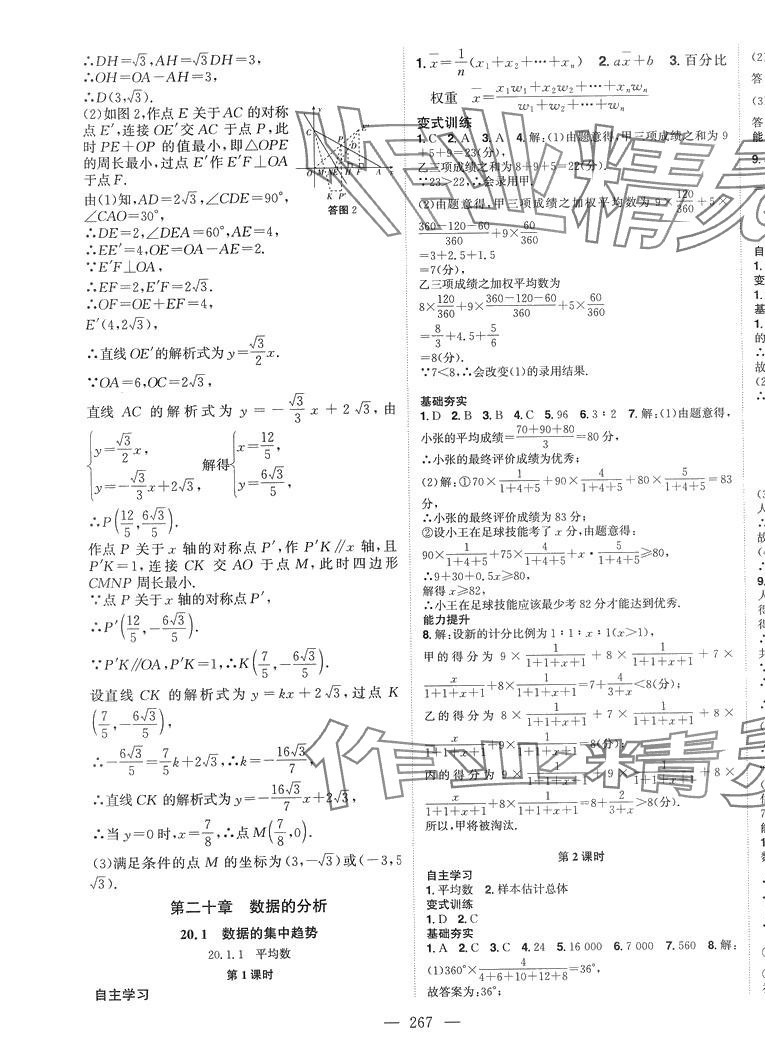 ∴DH=√3,AH=√3DH=3,
∴OH=OA−AH=3,
∴D(3,√3).
(2)如图2,作点 E 关于 AC 的对称
点 E′,连接 OE′交 AC 于点 P,此
时 PE+OP 的值最小,即△OPE
的周长最小,过点 E′作 E′F⊥OA
于点 F.
答图 2
由(1)知,AD=2√3,∠CDE=90°,
∠CAO=30°,
∴DE=2,∠DEA=60°,AE=4,
∴EE′=4,OE=OA−AE=2.
∵E′F⊥OA,
∴EF=2,E′F=2√3.
∴OF=OE+EF=4,
E′(4,2√3),
∴直线 OE′的解析式为 y=√3/2 x.
∵OA=6,OC=2√3,
直线 AC 的解析式为 y=−√3/3 x+2√3,由
{y=√3/2 x, y=−√3/3 x+2√3, 解得 {x=12/5, y=6√3/5.
∴P(12/5,6√3/5).
作点 P 关于 x 轴的对称点 P′,作 P′K∥x 轴,且
P′K=1,连接 CK 交 AO 于点 M,此时四边形
CMNP 周长最小.
∵点 P 关于 x 轴的对称点 P′,
∴P′(12/5,−6√3/5).
∵P′K∥OA,P′K=1,∴K(7/5,−6√3/5).
设直线 CK 的解析式为 y=kx+2√3,过点 K
(7/5,−6√3/5),
∴−6√3/5=7/5 k+2√3,∴k=−16√3/7,
∴直线 CK 的解析式为 y=−16√3/7 x+2√3,
∴当 y=0 时,x=7/8,∴点 M(7/8,0).
(3)满足条件的点 M 的坐标为(3,−√3)或(−3,5
√3).
第二十章 数据的分析
20.1 数据的集中趋势
20.1.1 平均数
第 1 课时
自主学习
1. x̄=1/n(x₁+x₂+…+xₙ) 2. ax̄+b 3. 百分比
权重 x̄=(x₁w₁+x₂w₂+…+xₙwₙ)/(w₁+w₂+…+wₙ)
变式训练
1.C 2.A 3.A 4.解:(1)由题意得,甲三项成绩之和为 9
+5+9=23(分),
乙三项成绩之和为 8+9+5=22(分).
∵23>22,∴会录用甲.
(2)由题意得,甲三项成绩之加权平均数为 9×120/360+5×
(360−120−60)/360+9×60/360
=3+2.5+1.5
=7(分),
乙三项成绩之加权平均数为
8×120/360+9×(360−120−60)/360+5×60/360
=8/3+4.5+5/6
=8(分).
∵7<8,∴会改变(1)的录用结果.
基础夯实
1.D 2.B 3.B 4.C 5.96 6.3∶2 7.解:(1)由题意得,
小张的平均成绩=(70+90+80)/3=80 分,
∴小张的最终评价成绩为优秀;
(2)解:①70×1/(1+4+5)+90×4/(1+4+5)+80×5/(1+4+5)=83
分,
∴小张的最终评价成绩为 83 分;
②设小王在足球技能考了 x 分,由题意得:
90×1/(1+4+5)+75×4/(1+4+5)+x·5/(1+4+5)≥80,
∴9+30+0.5x≥80,
解得 x≥82,
∴小王在足球技能应该最少考 82 分才能达到优秀.
能力提升
8.解:设新的计分比例为 1∶1∶x∶1(x>1),
甲的得分为 9×1/(1+1+x+1)+8×1/(1+1+x+1)+7×
x/(1+1+x+1)+8×1/(1+1+x+1)=7+4/(3+x)<8(分);
乙的得分为 8×1/(1+1+x+1)+7×1/(1+1+x+1)+8×
x/(1+1+x+1)+9×1/(1+1+x+1)=8(分);
丙的得分为 9×1/(1+1+x+1)+9×1/(1+1+x+1)+8×
x/(1+1+x+1)+8×1/(1+1+x+1)=8+2/(3+x)>8(分);
所以,甲将被淘汰.
第 2 课时
自主学习
1. 平均数 2. 样本估计总体
变式训练
1.D 2.C
基础夯实
1.A 2.C 3.C 4.24 5.16 000 6.7 000 7.560 8.解:
(1)360°×4/(4+6+10+12+8)=36°,
故答案为:36°;
— 267 —
作业精灵
作业精灵